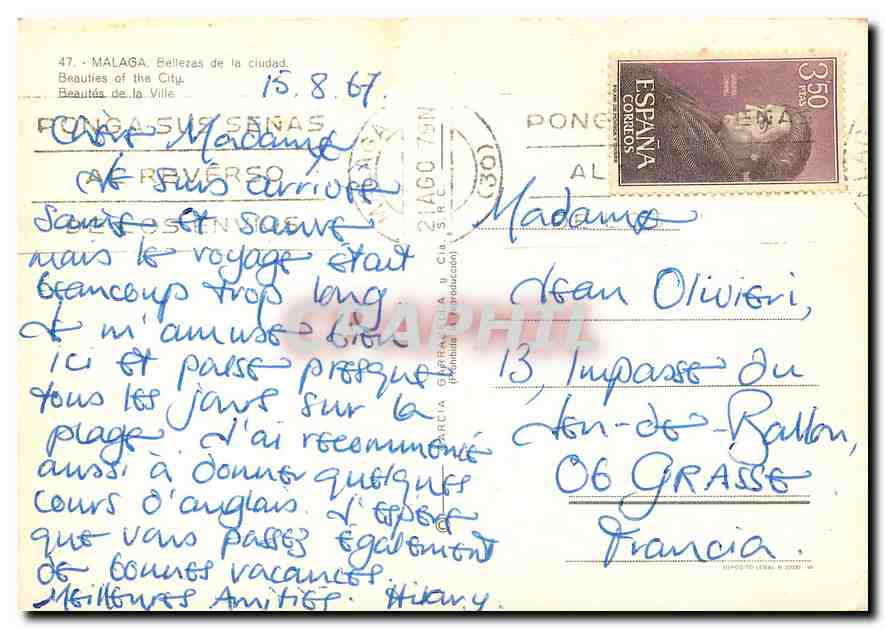 47. - MALAGA. Bellezas de la ciudad.
Beauties of the City.
Beautés de la Ville
15.8.67.
PONGA SUS SEÑAS
AL REVERSO
DE LOS ENVIOS
MALAGA
21 AGO 79N
(30)
PONGA SUS SEÑAS
AL
ESPAÑA
CORREOS
3,50
PTAS
Chère Madame
Je suis arrivée
saine et sauve
mais le voyage était
beaucoup trop long.
Je m'amuse bien
ici et passe presque
tous les jours sur la
plage. J'ai recommencé
aussi à donner quelques
cours d'anglais. J'espère
que vous passez également
de bonnes vacances.
Meilleures Amitiés. Hilary.
GARCIA GARRABELLA y Cía. S.R.C.
(Prohibida la reproducción)
Madame
Jean Olivieri,
13, Impasse du
Jeu-de-Ballon,
06 GRASSE
Francia.
DEPOSITO LEGAL B.
CPAPHIL